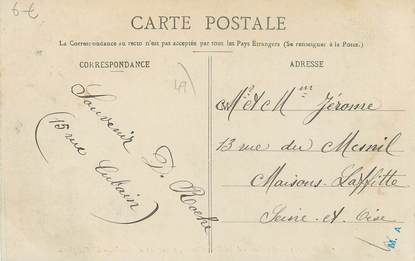 6 €
CARTE POSTALE
La Correspondance au recto n'est pas acceptée par tous les Pays Etrangers (Se renseigner à la Poste.)
CORRESPONDANCE
ADRESSE
49
Souvenir D. Roche
(15 rue Cubain)
Mr & Mme Jérome
13 rue du Mesnil
Maisons-Laffitte
Seine-et-Oise
M. A